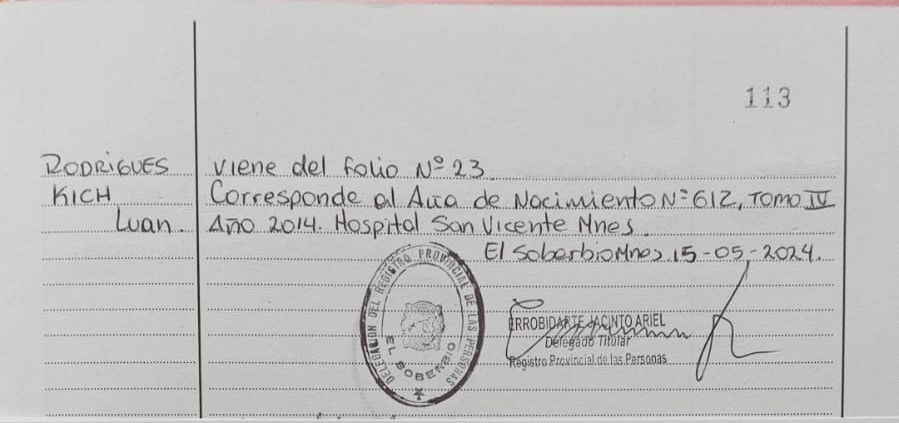 113
RODRIGUES
KICH
Luan.
viene del Folio Nº 23.
Corresponde al Acta de Nacimiento Nº 612, Tomo IV
Año 2014. Hospital San Vicente Mnes.
El Soberbio Mnes 15-05-2024.
DELEGACION DEL REGISTRO PROVINCIAL DE LAS PERSONAS
EL SOBERBIO
ERROBIDARTE JACINTO ARIEL
Delegado Titular
Registro Provincial de las Personas